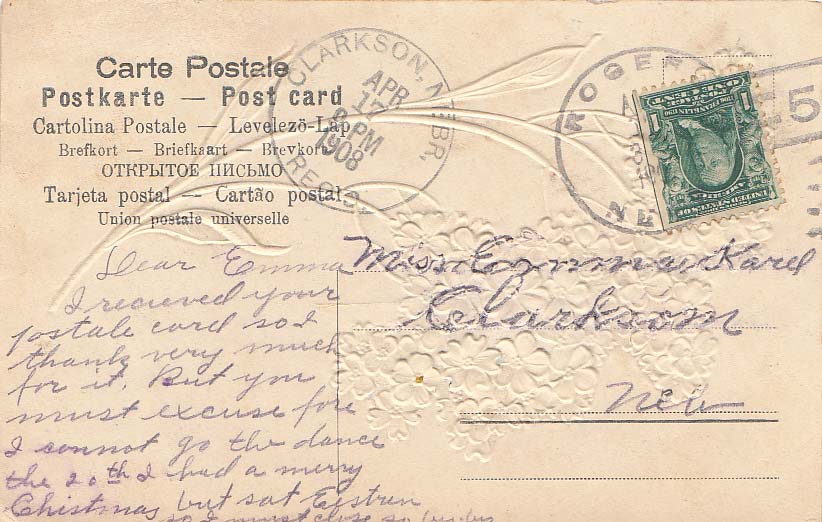 Carte Postale
Postkarte — Post card
Cartolina Postale — Levelezö-Lap
Brefkort — Briefkaart — Brevkort
ОТКРЫТОЕ ПИСЬМО
Tarjeta postal — Cartão postal
Union postale universelle
CLARKSON, NEBR.
APR
17
8 PM
1908
REC'D.
ROGERS
NE
5
1
POSTAGE
ONE CENT
1
Miss Emma Karel
Clarkson
Neb
Dear Emma
I recieved your
postale card so I
thank very much
for it. But you
must excuse fore
I connot go the dance
the 20th I had a merry
Chistmas but sat Eestren
so I must close so by by